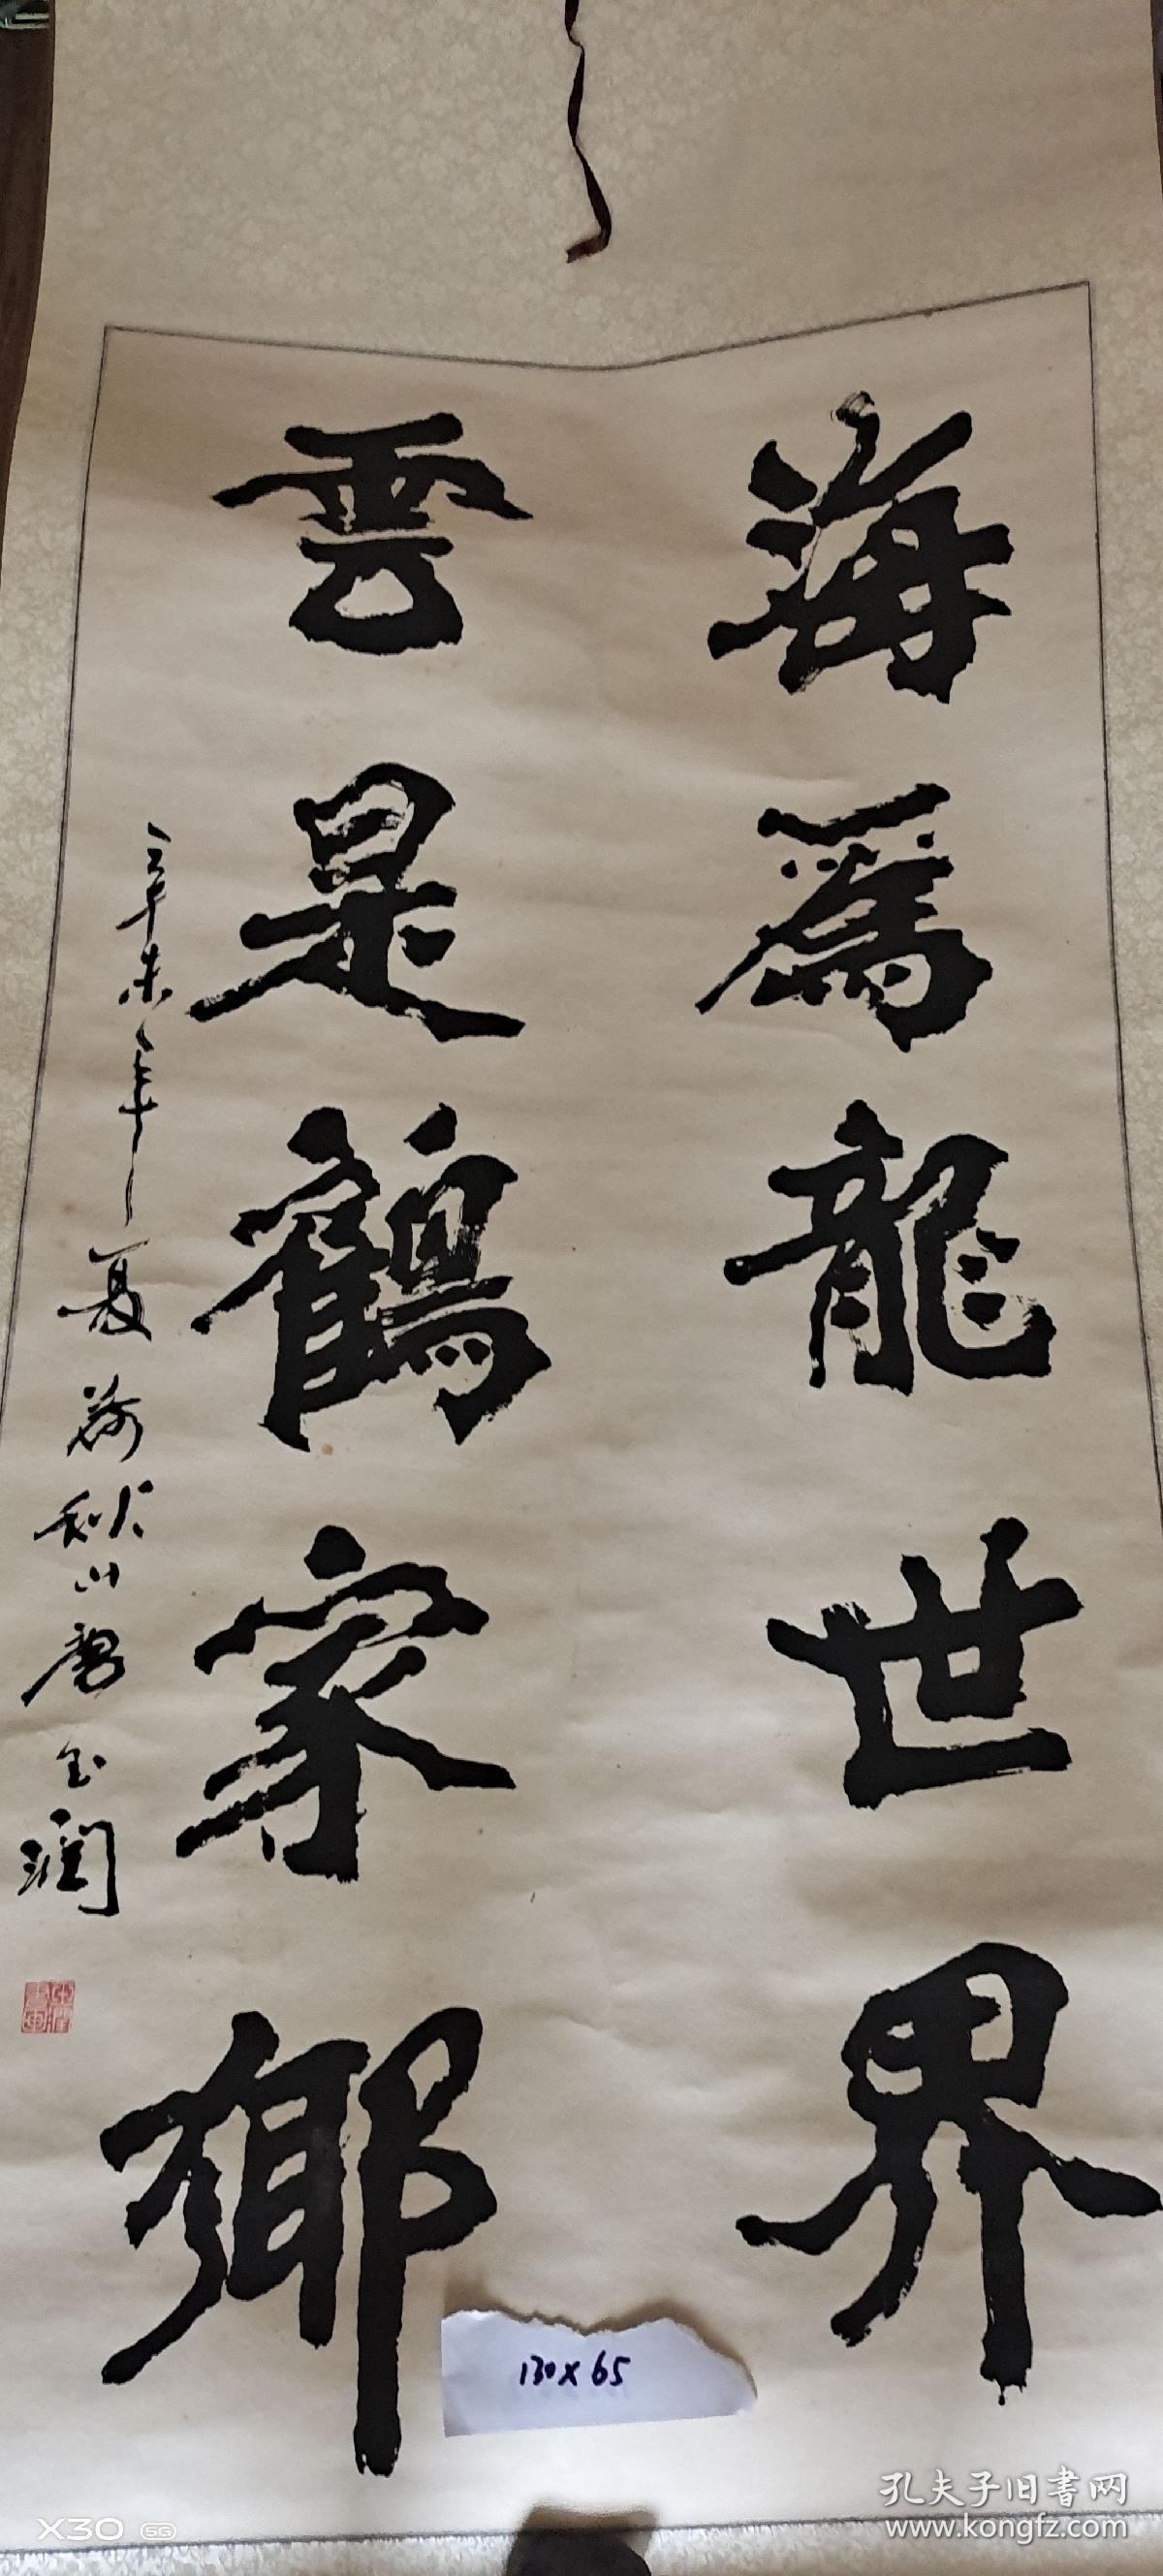 海為龍世界
雲是鶴家鄉
辛未年夏荷秋川唐玉潤
130×65
孔夫子旧書网
www.kongfz.com
X30 5G